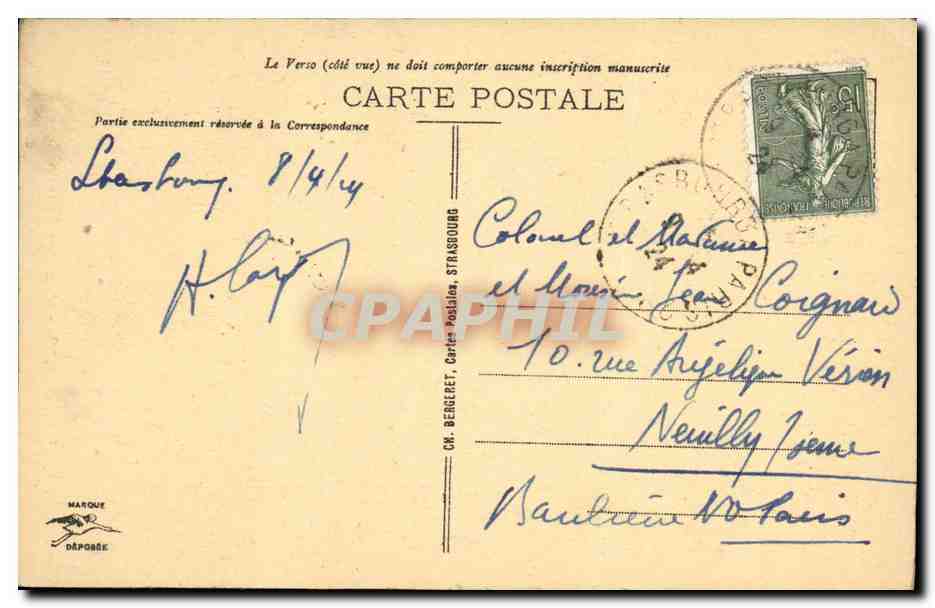 Le Verso (côté vue) ne doit comporter aucune inscription manuscrite
CARTE POSTALE
Partie exclusivement réservée à la Correspondance
Strasbourg. 8/4/24
H.
Colonel et Madame
et Monsieur Jean Coignard
10. rue Angélique Vérien
Neuilly /Seine
Banlieue NO Paris
CH. BERGERET, Cartes Postales, STRASBOURG
MARQUE
DÉPOSÉE
15c
POSTES
REPUBLIQUE FRANÇAISE
STRASBOURG PARIS
24
CPAPHIL